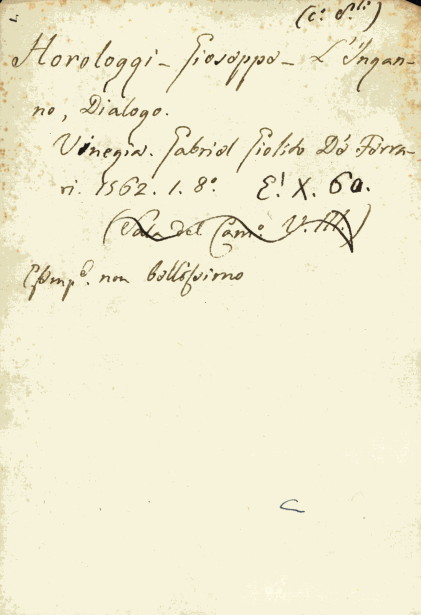 Horologgi - Gioseppe - L'Ingan-
no, Dialogo.
Vinegia. Gabriel Giolito De' Ferra-
ri. 1562. 1. 8.º E! X. 60.
(Sala del Cam.º V. III.)
Essemp.º non bellissimo